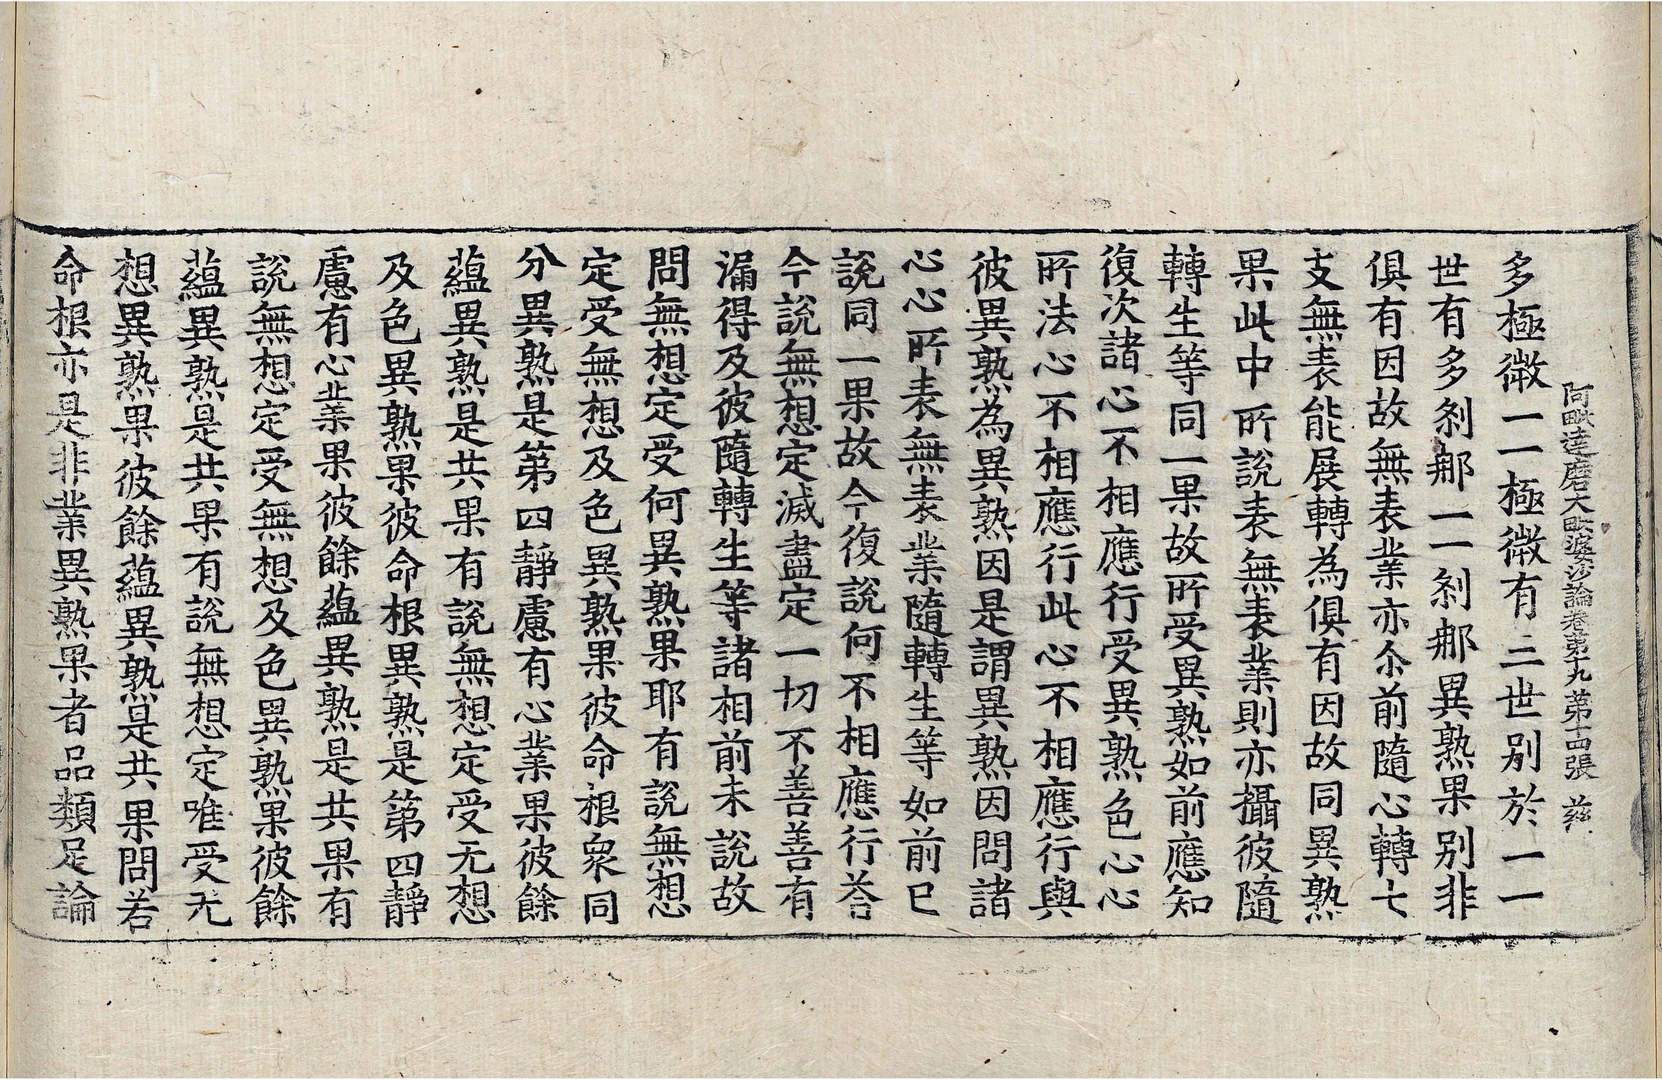 阿毗達磨大毗婆沙論卷第十九 第十四張 玆
多極微一一極微有三世別於一一
世有多刹那一一刹那異熟果別非
俱有因故無表業亦尒前隨心轉七
支無表能展轉為俱有因故同異熟
果此中所說表無表業則亦攝彼隨
轉生等同一果故所受異熟如前應知
復次諸心不相應行受異熟色心心
所法心不相應行此心不相應行與
彼異熟為異熟因是謂異熟因問諸
心心所表無表業隨轉生等如前已
說同一果故今復說何不相應行荅
今說無想定滅盡定一切不善善有
漏得及彼隨轉生等諸相前未說故
問無想定受何異熟果耶有說無想
定受無想及色異熟果彼命根衆同
分異熟是第四靜慮有心業果彼餘
蘊異熟是共果有說無想定受无想
及色異熟果彼命根異熟是第四靜
慮有心業果彼餘蘊異熟是共果有
說無想定受無想及色異熟果彼餘
蘊異熟是共果有說無想定唯受无
想異熟果彼餘蘊異熟是共果問若
命根亦是非業異熟果者品類足論